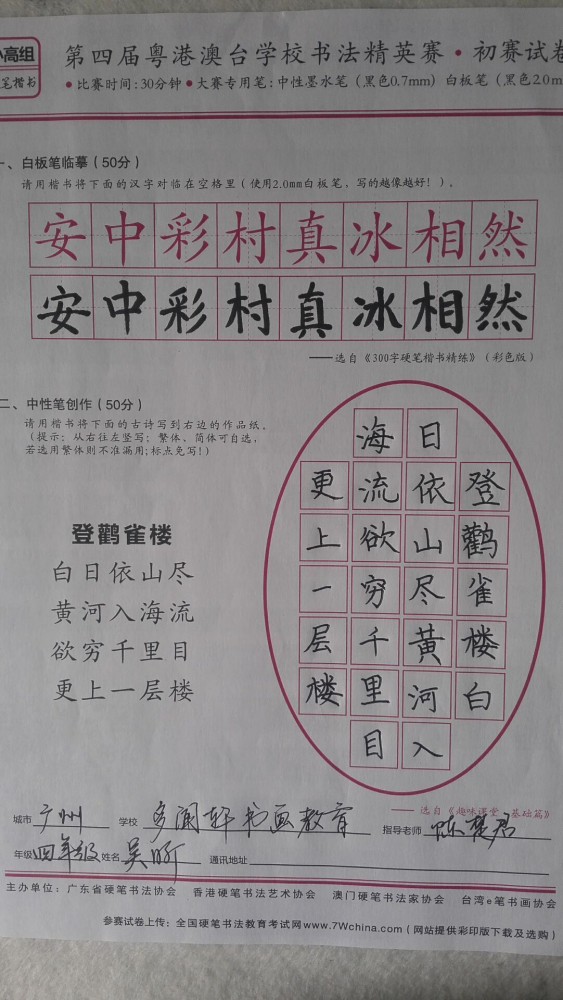 小高组
笔楷书
第四届粤港澳台学校书法精英赛·初赛试卷
●比赛时间:30分钟●大赛专用笔:中性墨水笔（黑色0.7mm）白板笔（黑色2.0m
一、白板笔临摹（50分）
请用楷书将下面的汉字对临在空格里（使用2.0mm白板笔，写的越像越好！）。
安中彩村真冰相然
安中彩村真冰相然
——选自《300字硬笔楷书精练》（彩色版）
二、中性笔创作（50分）
请用楷书将下面的古诗写到右边的作品纸。
（提示：从右往左竖写；繁体、简体可自选，
若选用繁体则不准漏用;标点免写!）
登鹳雀楼
白日依山尽
黄河入海流
欲穷千里目
更上一层楼
登鹳雀楼白
日依山尽黄河入
海流欲穷千里目
更上一层楼
——选自《趣味课堂·基础篇》
城市 广州 学校 多闻轩书画教育 指导老师 陈楚君
年级 四年级 姓名 吴昕 通讯地址
主办单位：广东省硬笔书法协会 香港硬笔书法艺术协会 澳门硬笔书法家协会 台湾e笔书画协会
参赛试卷上传：全国硬笔书法教育考试网www.7Wchina.com（网站提供彩印版下载及选购）